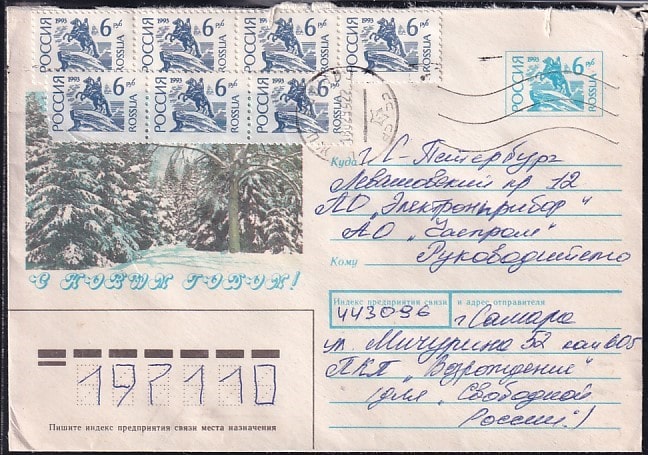 РОССИЯ 1993 6 руб ROSSIJA
РОССИЯ 1993 6 руб ROSSIJA
РОССИЯ 1993 6 руб ROSSIJA
РОССИЯ 1993 6 руб ROSSIJA
РОССИЯ 1993 6 руб ROSSIJA
РОССИЯ 1993 6 руб ROSSIJA
РОССИЯ 1993 6 руб ROSSIJA
РОССИЯ 1993 6 руб ROSSIJA
С НОВЫМ ГОДОМ!
Куда г. С-Петербург
Левашовский пр 12
АО „Электронприбор"
АО „Заспром"
Кому Руководителю
Индекс предприятия связи и адрес отправителя
443096 г Самара
ул. Мичурина 52 ком 605
ПКП „Возрождение"
(для „Свободной
России")
197110
Пишите индекс предприятия связи места назначения